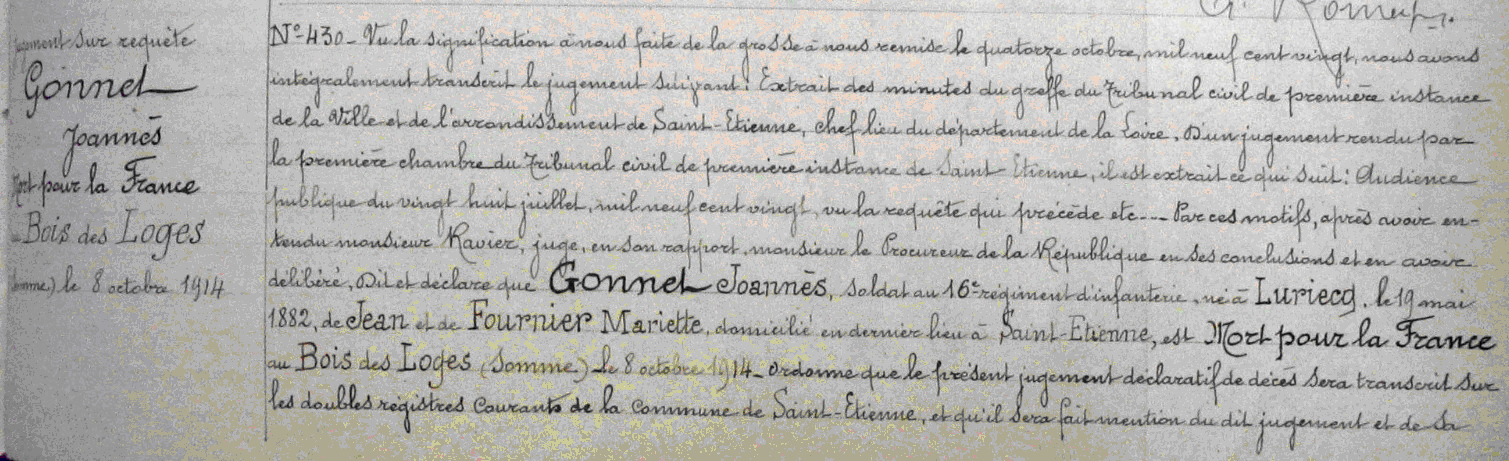 G. Romeyer.
jugement sur requête
Gonnet
Joannès
Mort pour la France
au Bois des Loges
(Somme) le 8 octobre 1914
N° 430 - Vu la signification à nous faite de la grosse à nous remise le quatorze octobre, mil neuf cent vingt, nous avons
intégralement transcrit le jugement suivant : Extrait des minutes du greffe du Tribunal civil de première instance
de la Ville et de l'arrondissement de Saint-Etienne, chef lieu du département de la Loire. D'un jugement rendu par
la première chambre du Tribunal civil de première instance de Saint-Etienne, il est extrait ce qui suit : Audience
publique du vingt huit juillet, mil neuf cent vingt, vu la requête qui précède etc--- Par ces motifs, après avoir en-
tendu monsieur Ravier, juge, en son rapport, monsieur le Procureur de la République en ses conclusions et en avoir
délibéré, Dit et déclare que Gonnet Joannès, soldat au 16e régiment d'infanterie, né à Luriecq, le 19 mai
1882, de Jean et de Fournier Mariette, domicilié en dernier lieu à Saint-Etienne, est Mort pour la France
au Bois des Loges (Somme) le 8 octobre 1914 - ordonne que le présent jugement déclaratif de décès sera transcrit sur
les doubles régistres courants de la commune de Saint-Etienne, et qu'il sera fait mention du dit jugement et de sa